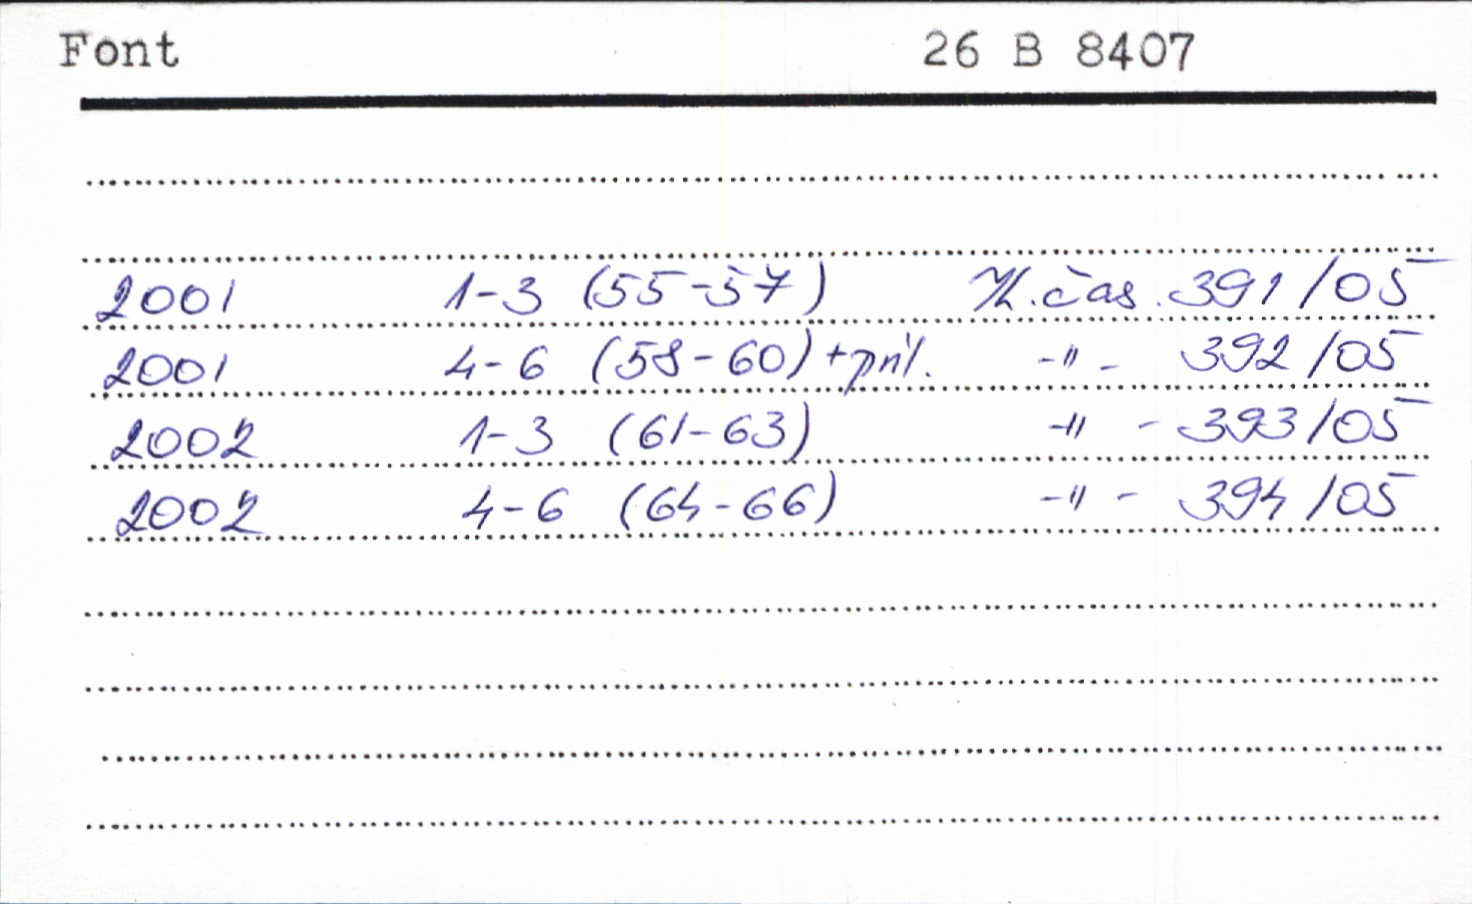 Font 26 B 8407
2001 1-3 (55-57) Zl. čas. 391/05
2001 4-6 (58-60) + příl. -"- 392/05
2002 1-3 (61-63) -"- 393/05
2002 4-6 (64-66) -"- 394/05